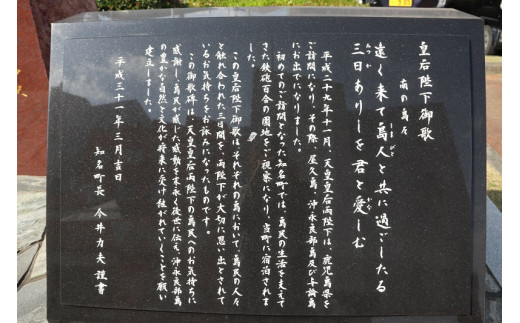 皇后陛下御歌
南の島々
遠く来て島人と共に過ごしたる
三日ありしを君と愛しむ
平成二十九年十一月、天皇皇后両陛下は、鹿児島県を
ご訪問になり、その際、屋久島、沖永良部島及び与論島
にお出でになりました。
初めてのご訪問となった知名町では、島民の生活を支えて
きた鉄砲百合の圃地をご視察になり、当町に宿泊されま
した。
この皇后陛下御歌は、それぞれの島において、島民の人々
と触れ合われた三日間を、両陛下が大切に思い出とされて
いるお気持ちをお詠みになったものです。
この御歌碑は、天皇皇后両陛下の島民へのお気持ちに
感謝し、島民が感じた感動を末永く後世に伝え、沖永良部島
の豊かな自然と文化が将来に受け継がれていくことを願い
建立しました。
平成三十一年三月吉日
知名町長 今井力夫 謹書